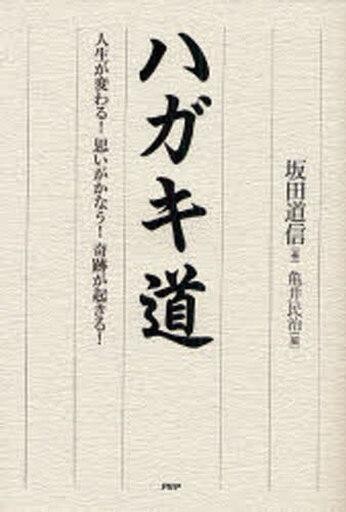 坂田道信[著] 亀井民治[編]
ハガキ道
人生が変わる!思いがかなう!奇跡が起きる!
PHP